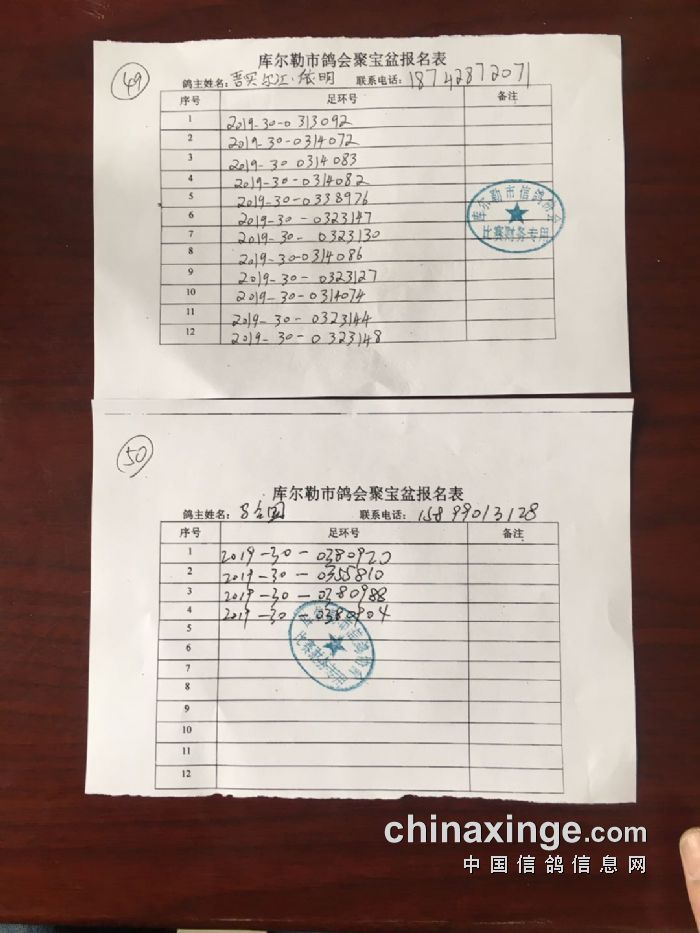 49
库尔勒市鸽会聚宝盆报名表
鸽主姓名: 买尔江·依明 联系电话: 18742872071
序号 足环号 备注
1 2019-30-0313092
2 2019-30-0314072
3 2019-30 0314083
4 2019-30-0314082
5 2019-30-0338976
6 2019-30-0323147
7 2019-30- 0323130
8 2019-30-0314086
9 2019-30-0323127
10 2019-30-0314074
11 2019-30-0323144
12 2019-30-0323148
库尔勒市信鸽协会
比赛财务专用
50
库尔勒市鸽会聚宝盆报名表
鸽主姓名: 联系电话: 15899013128
序号 足环号 备注
1 2019-30-0380920
2 2019-30-0355810
3 2019-30-0380988
4 2019-30-0380904
5
6
7
8
9
10
11
12
市信鸽协会
比赛财务专用
chinaxinge.com
中国信鸽信息网